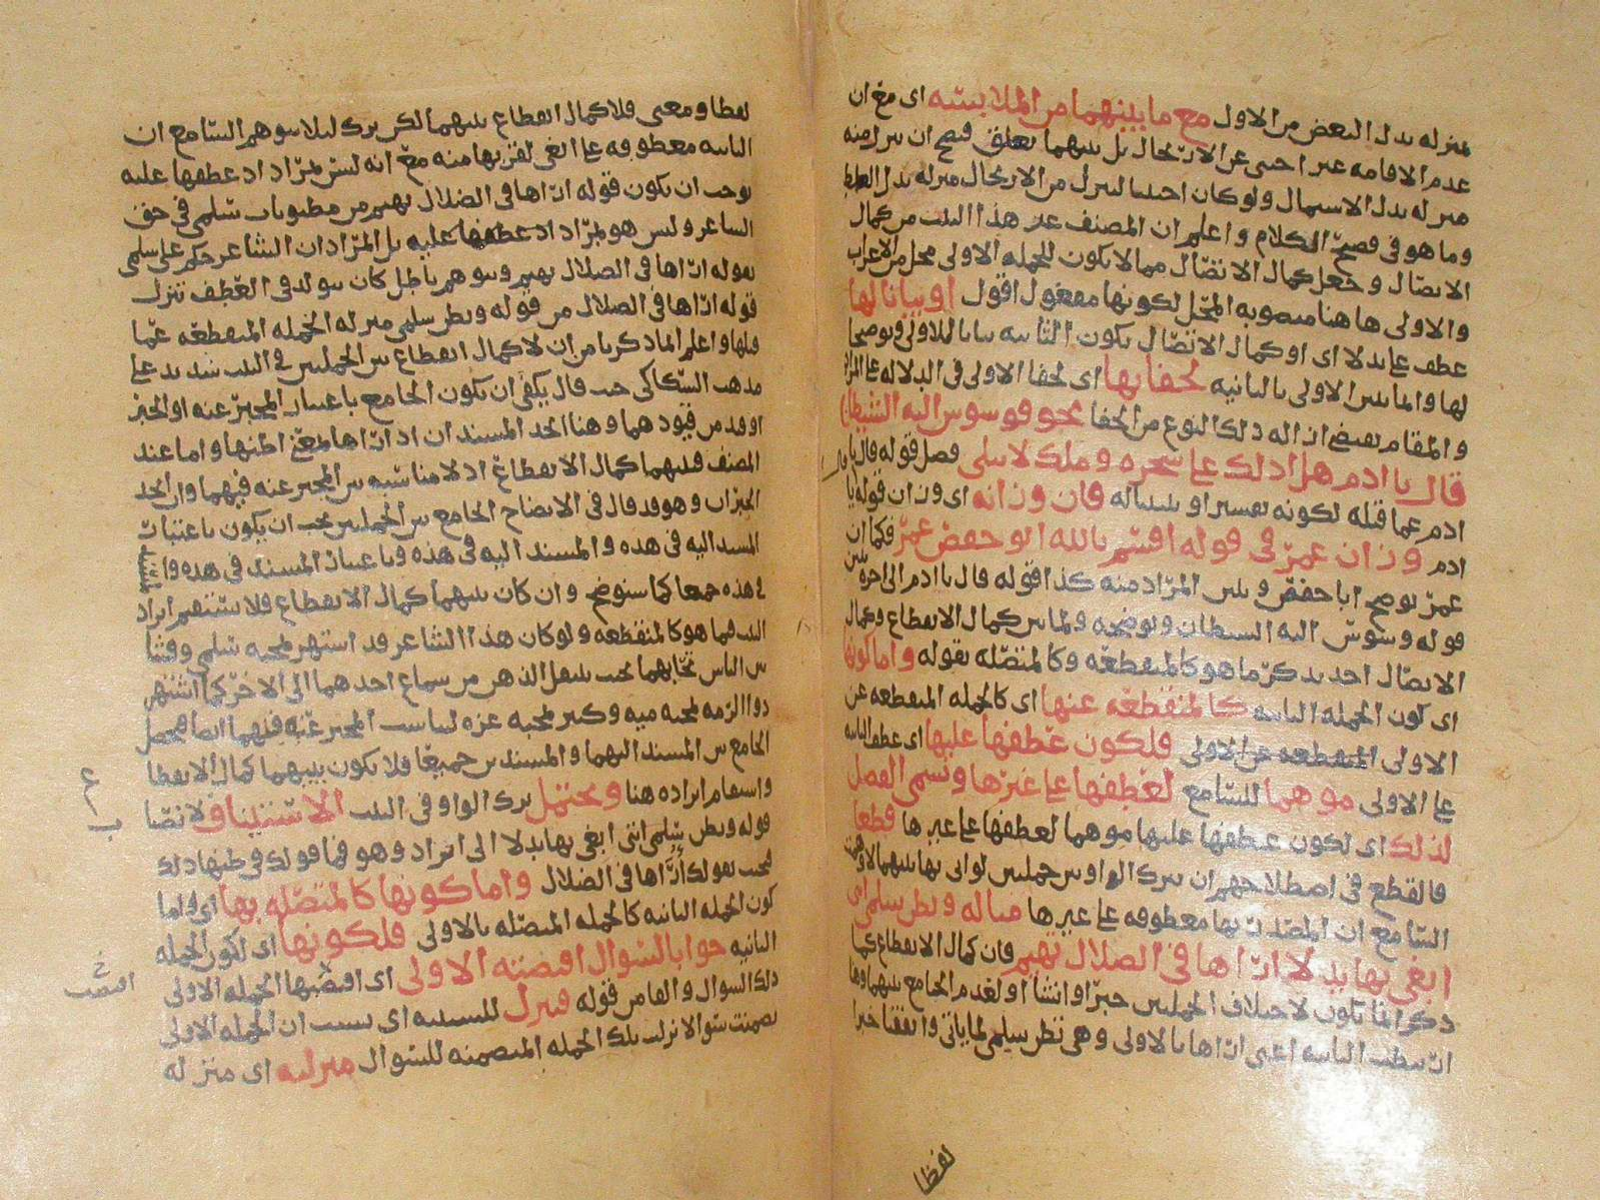 بمنزله بدل البعض من الاول مع ما بينهما من الملابسه اى مع ان
عدم الاقامه غير اجنبى عن الارتحال بل بينهما تعلق فصح ان ينزل منه
منزله بدل الاستمال ولو كان اجنبيا لنزل من الارتحال منزله بدل الغلط
وما هو فى فصيح الكلام واعلم ان المصنف عد هذا البيت من كمال
الاتصال وجعل كمال الاتصال مما لا يكون للجمله الاولى محل من الاعراب
والاولى هاهنا منصوبه المحل لكونها مفعول اقول او بيانا لها
عطف على بدلا اى او كمال الاتصال بكون الثانيه بيانا للاولى وتوضيحا
لها وانما تبين الاولى بالثانيه لخفايها اى لخفا الاولى فى الدلاله على المراد
والمقام يقتضى ازاله ذلك النوع من الخفا نحو فوسوس اليه الشيطان
قال يا ادم هل ادلك على شجره وملك لا يبلى فصل قوله قال يا
ادم عما قبله لكونه تفسيرا وتبيانا له فان وزانه اى وزان قوله يا
ادم وزان عمر فى قوله اقسم بالله ابو حفص عمر فكما ان
عمر توضيح ابا حفص وبين المراد منه كذا قوله قال يا ادم الى اخره بين
قوله وسوس اليه الشيطان وتوضيحه ولما بين كمال الانقطاع وكمال
الاتصال اخذ يذكر ما هو كالمنقطعه وكالمتصله بقوله واما كونها
اى كون الجمله الثانيه كالمنقطعه عنها اى كالجمله المنقطعه عن
الاولى المنقطعه عن الاولى فلكون عطفها عليها اى عطف الثانيه
على الاولى موهما للسامع لعطفها على غيرها وتسمى الفصل
لذلك اى لكون عطفها عليها موهما لعطفها على غيرها قطعا
فالقطع فى اصطلاحهم ان يترك الواو بين جملتين لو اتى بها بينهما لاوهمت
السامع ان المصدرت بها معطوفه على غيرها مثاله وتظن سلمى انى
ابغى بها بدلا اراها فى الضلال تهيم فان كمال الانقطاع كما
ذكر انما يكون لاختلاف الجملتين خبرا وانشا او لعدم الجامع بينهما وها
ارتبطت الثانيه اعنى اراها بالاولى وهى تظن سلمى لما ياتى واتفقتا خبرا
لفظا
لفظا ومعنى فلا كمال انقطاع بينهما لكن ترك لئلا يتوهم السامع ان
الثانيه معطوفه على ابغى لقربها منه مع انه ليس بمراد اذ عطفها عليه
يوجب ان يكون قوله اراها فى الضلال تهيم من مظنونات سلمى فى حق
الشاعر وليس هو بمراد اذ عطفها عليه بل المراد ان الشاعر حكم على سلمى
بقوله اراها فى الضلال تهيم وتوهم باطل كان يتولد فى العطف تنزل
قوله اراها فى الضلال من قوله وتظن سلمى منزله الجمله المنقطعه عما
قبلها واعلم ان ما ذكرنا من ان لا كمال انقطاع بين الجملتين فى البيت شديد على
مذهب السكاكى حيث قال يكفى ان يكون الجامع باعتبار المخبر عنه او الخبر
او قيد من قيودهما وهنا اتحد المسند ان اذ اراها بمعنى اظنها واما عند
المصنف فبينهما كمال الانقطاع اذ لا مناسبه بين المخبر عنه فيهما وان اتحد
الخبران وهو قد قال فى الايضاح الجامع بين الجملتين يجب ان يكون باعتبار
المسند اليه فى هذه والمسند اليه فى هذه وباعتبار المسند فى هذه والمسند
فى هذه جمعا كما سنوضح وان كان بينهما كمال الانقطاع فلا يستقيم ايراد
البيت فيما هو كالمنقطعه ولو كان هذا الشاعر قد اشتهر بمحبه سلمى وفشا
بين الناس تحابهما بحيث ينتقل الذهن من سماع احدهما الى الاخر كما اشتهر
ذو الرمه بمحبه ميه وكثير بمحبه عزه لتناسب المخبر عنه فيهما ايضا فحصل
الجامع بين المسند اليهما والمسندين جميعا فلا يكون بينهما كمال الانقطا
واستقام ايراده هنا ويحتمل ترك الواو فى البيت الاستيناف لاتصا
ع
ب
قوله وتظن سلمى اننى ابغى بها بدلا الى ايراد وهو فما قولك فى ظنها ذلك
فيجيب بقولك اراها فى الضلال واما كونها كالمتصله بها اى واما
كون الجمله الثانيه كالجمله المتصله بالاولى فلكونها اى لكون الجمله
الثانيه جوابا لسوال اقتضته الاولى اى اقتضتها الجمله الاولى
خ
اقتضت
ذلك السوال والفا من قوله فتنزل للسببيه اى بسبب ان الجمله الاولى
تضمنت سوالا نزلت تلك الجمله المتضمنه للسوال منزلته اى منزله